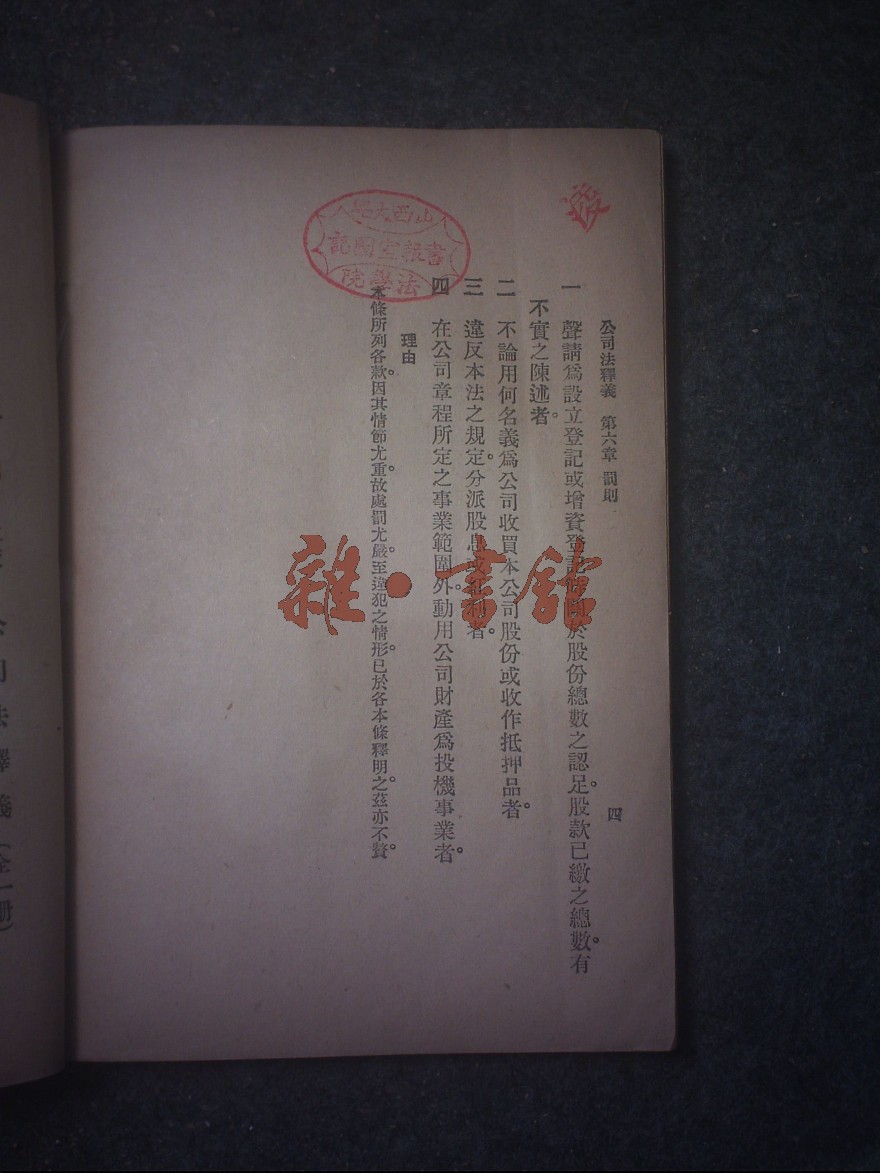 公司法釋義　第六章　罰則
四
一　聲請爲設立登記或增資登記時關於股份總數之認足。股款已繳之總數。有
不實之陳述者。
二　不論用何名義爲公司收買本公司股份或收作抵押品者。
三　違反本法之規定。分派股息或紅利者。
四　在公司章程所定之事業範圍外。動用公司財產爲投機事業者。
理由
本條所列各款。因其情節尤重。故處罰尤嚴。至違犯之情形。已於各本條釋明之。茲亦不贅。
山西大學
書報室圖記
法學院
雜·書館
公司法釋義（全一冊）